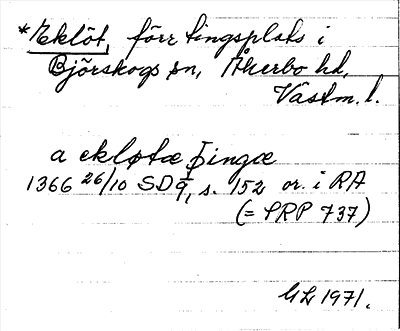 *Eklöt, förr tingsplats i
Björskogs sn, Åkerbo hd,
Västm. l.
a ekløtæ þingæ
1366 26/10 SD 9, s. 152 or. i RA
(= SRP 737)
GL 1971.